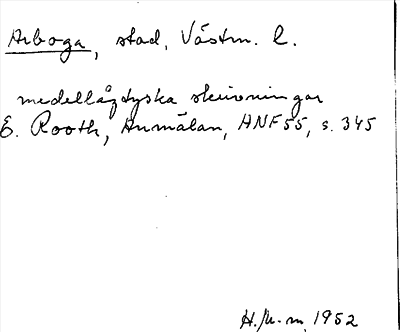 Arboga, stad, Västm. l.
medellågtyska skrivningar
E. Rooth, Anmälan, HNF 55, s. 345
H. 1952